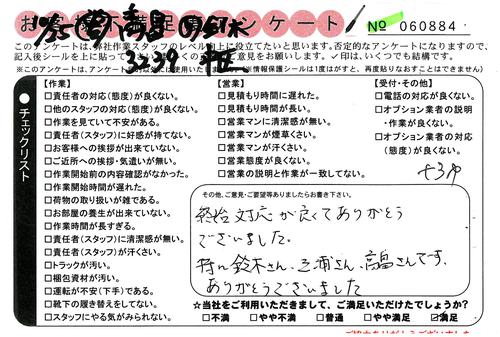 お客様不満足度アンケート
No 060884
このアンケートは、弊社作業スタッフのレベル向上に役立てたいと思います。否定的なアンケートになりますので、
記入後シールを上に貼って
ご意見をお願いします。✓印は、いくつでも結構です。
チェックリスト
【作業】
□責任者の対応(態度)が良くない。
□他のスタッフの対応(態度)が良くない。
□作業を見ていて不安がある。
□責任者(スタッフ)に好感が持てない。
□お客様への挨拶が出来ていない。
□ご近所への挨拶・気遣いが無い。
□作業開始前の内容確認がなかった。
□作業開始時間が遅れた。
□荷物の取り扱いが雑である。
□お部屋の養生が出来ていない。
□作業時間が長すぎる。
□責任者(スタッフ)に清潔感が無い。
□責任者(スタッフ)が汗くさい。
□トラックが汚い。
□梱包資材が汚い。
□運転が不安(下手)である。
□靴下の履き替えをしてない。
□スタッフにやる気がみられない。
【営業】
□見積もり時間に遅れた。
□見積もり時間が長い。
□営業マンに清潔感が無い。
□営業マンが煙草くさい。
□営業マンが汗くさい。
□営業態度が良くない。
□営業の説明と作業が一致してない。
【受付・その他】
□電話の対応が良くない。
□オプション業者の説明
・作業が良くない。
□オプション業者の対応
(態度)が良くない。
その他、ご意見・ご要望等ありましたらお書き下さい。
終始対応が良くてありがとう
ございました。
特に鈴木さん、三浦さん、高畠さんです。
ありがとうございました
☆当社をご利用いただきまして、ご満足いただけたでしょうか?
□不満 □やや不満 □普通 □やや満足 ☑満足